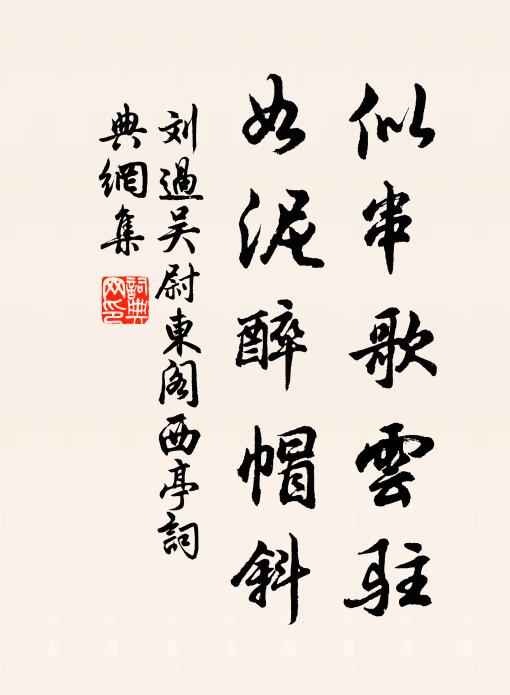 似串歌雲駐
如泥醉帽斜
刘過吴尉東阁西亭詞
典網集
詞典网印